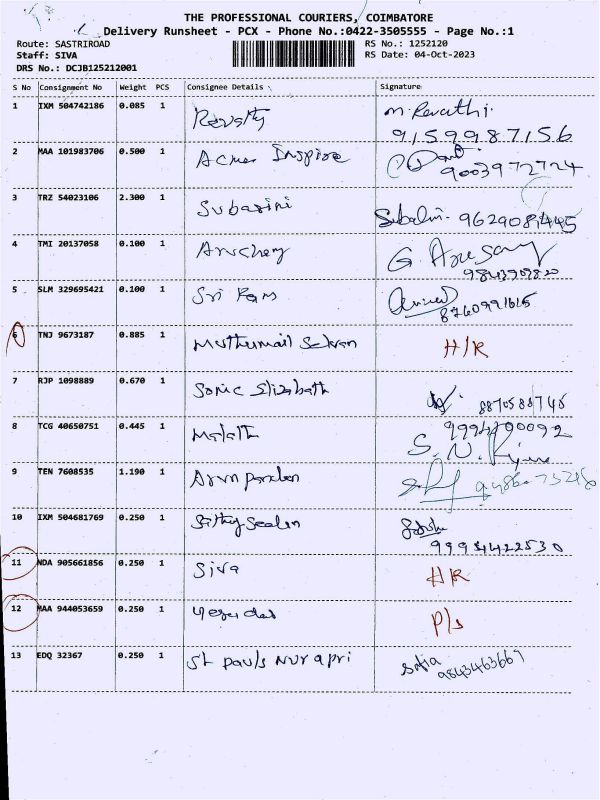 THE PROFESSIONAL COURIERS, COIMBATORE
Delivery Runsheet - PCX - Phone No.:0422-3505555 - Page No.:1
Route: SASTRIROAD RS No.: 1252120
Staff: SIVA RS Date: 04-Oct-2023
DRS No.: DCJB125212001
S No Consignment No Weight PCS Consignee Details Signature
1 IXM 504742186 0.085 1 Revathy M. Revathi.
9159987156
2 MAA 101983706 0.500 1 Inspire
9003972724
3 TRZ 54023106 2.300 1 Subasini 9629081445
4 TMI 20137058 0.100 1 G.
5 SLM 329695421 0.100 1 Sri Ram
8760991615
6 TNJ 9673187 0.885 1 H/R
7 RJP 1098889 0.670 1 Sonic Elizabath
8 TCG 40650751 0.445 1 Malath
S.N.
9 TEN 7608535 1.190 1
10 IXM 504681769 0.250 1
11 NDA 905661856 0.250 1 Siva H/R
12 MAA 944053659 0.250 1 P/s
13 EDQ 32367 0.250 1 St pauls
9843463667